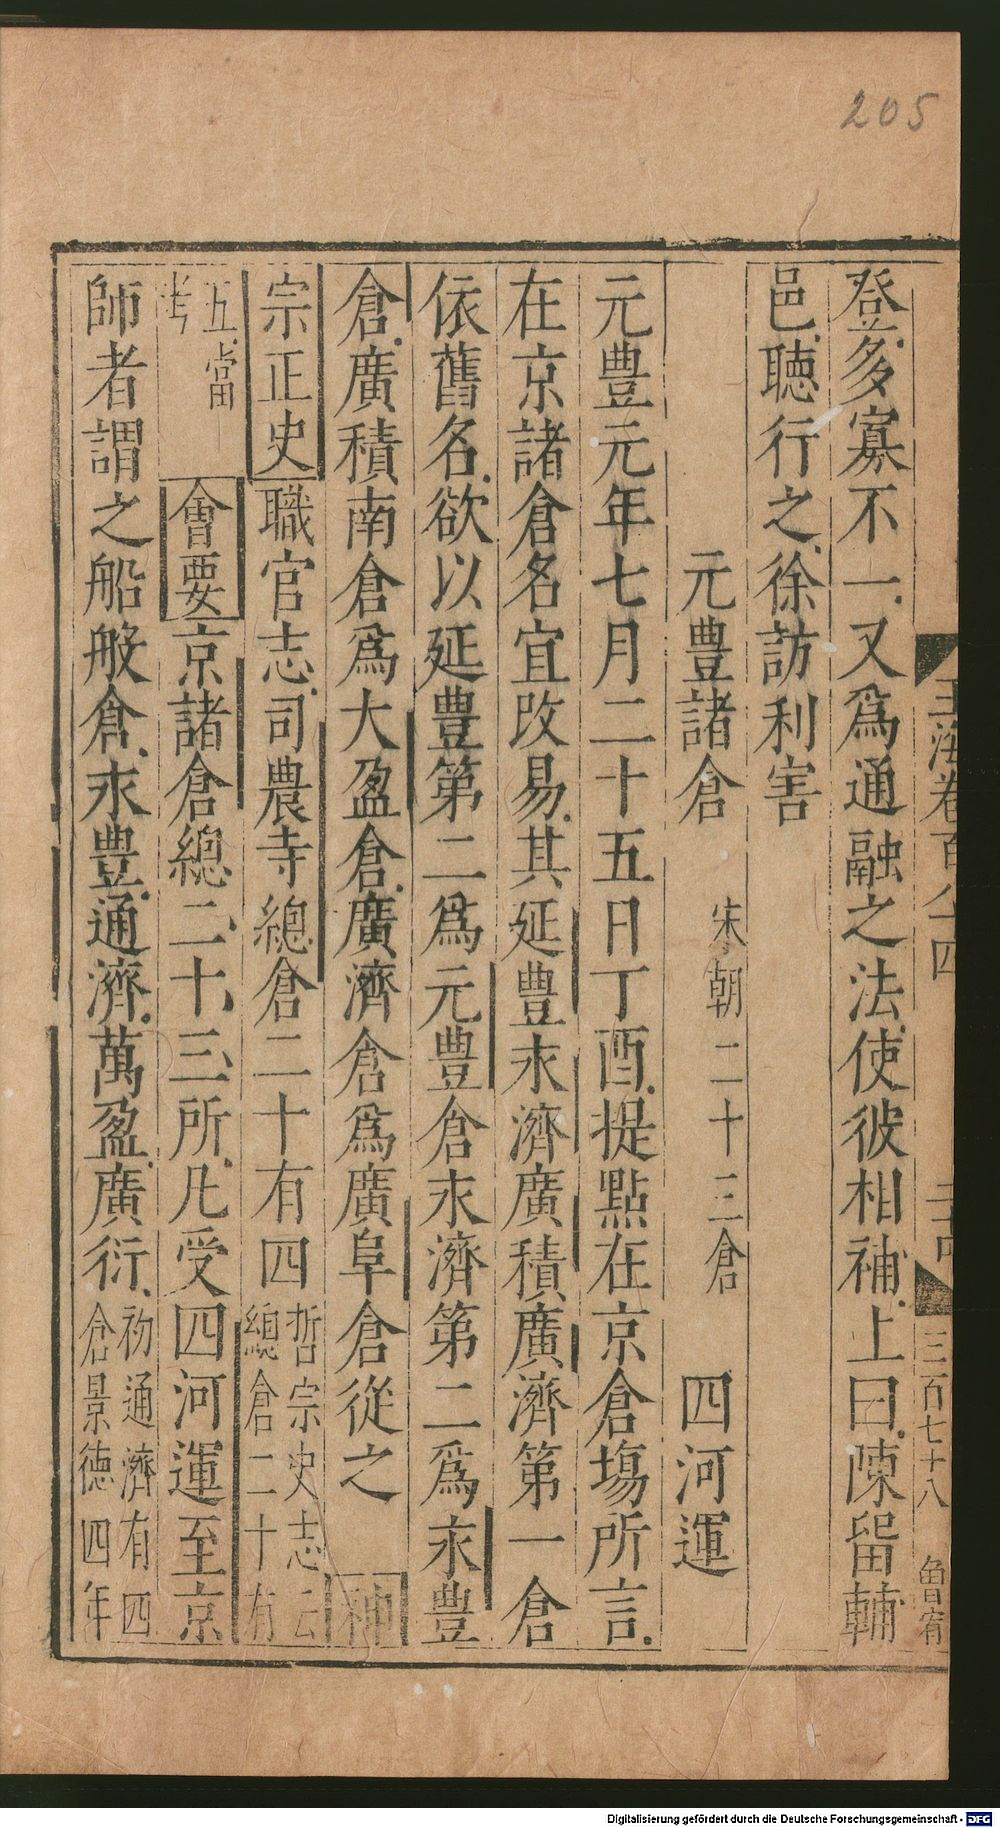 205
登多寡不一又爲通融之法使彼相補上曰陳留輔
邑聽行之徐訪利害
元豐諸倉 宋朝二十三倉 四河運
元豐元年七月二十五日丁酉提點在京倉塲所言
在京諸倉名宜改易其延豐永濟廣積廣濟第一倉
依舊名欲以延豐第二爲元豐倉永濟第二爲永豐
倉廣積南倉爲大盈倉廣濟倉爲廣阜倉從之 神
宗正史職官志司農寺總倉二十有四 哲宗史志云
總倉二十有
五當
考 會要京諸倉總二十三所凡受四河運至京
師者謂之船般倉永豐通濟萬盈廣衍 初通濟有四
倉景德四年
玉海卷百八十四
二十四
三百七十八
Digitalisierung gefördert durch die Deutsche Forschungsgemeinschaft - DFG